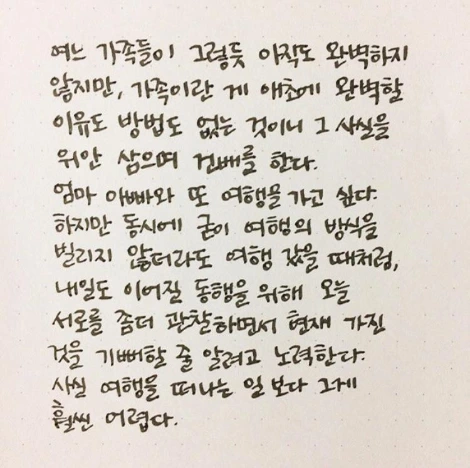 여느 가족들이 그렇듯 아직도 완벽하지
않지만, 가족이란 게 애초에 완벽할
이유도 방법도 없는 것이니 그 사실을
위안 삼으며 건배를 한다.
엄마 아빠와 또 여행을 가고 싶다.
하지만 동시에 굳이 여행의 방식을
빌리지 않더라도 여행 갔을 때처럼,
내일도 이어질 동행을 위해 오늘
서로를 좀더 관찰하면서 현재 가진
것을 기뻐할 줄 알려고 노력한다.
사실 여행을 떠나는 일 보다 그게
훨씬 어렵다.